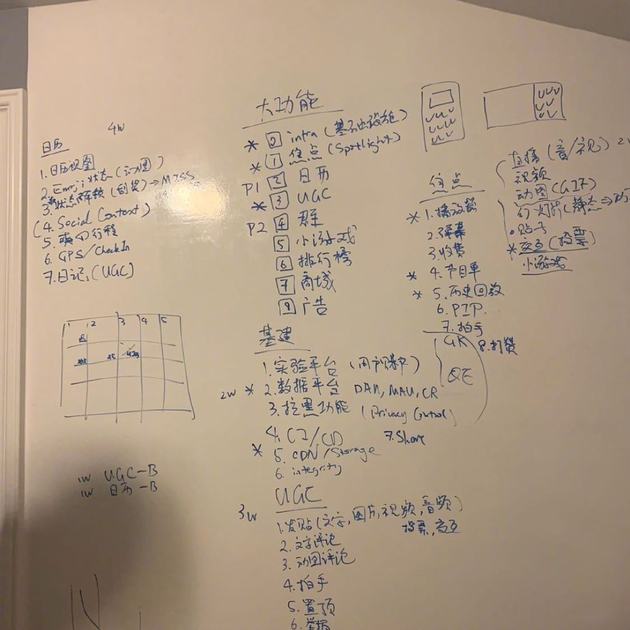 日历
4W
1. 日历视图
2. Emoji 状态 (动图)
3. 状态解锁 (创奖) → M7SS
(4. Social Context)
5. 行程
6. GPS/Check In
7. 日记, (UGC)
1 2 3 4 5
1W UGC-B
1W 日历-B
大功能
* 0 infra (基础设施)
* 1 焦点 (Spotlight)
P1 2 日历
* 3 UGC
P2 4 群
5 小游戏
6 排行榜
7 商城
9 广告
基建
1. 实验平台 (用户保护)
2W * 2. 数据平台 DAU, MAU, CR
3. 拉黑功能 (Privacy Control)
4. CI/CD
7. Short
* 5. CDN/Storage
6. integrity
UGC
3W
1. 发贴 (文字, 图片, 视频, 音频)
投票, 交互
2. 文字评论
3. 动图评论
4. 拍手
5. 置顶
6. 举报
焦点
* 1. 播放器
2. 弹幕
3. 收费
* 4. 节目单
* 5. 历史回放
6. PIP
7. 拍手
8. 打赏
QR
QE
直播 (音/视) 2W
视频
动图 (GIF)
幻灯片
贴子
* 交互 (投票)
小游戏